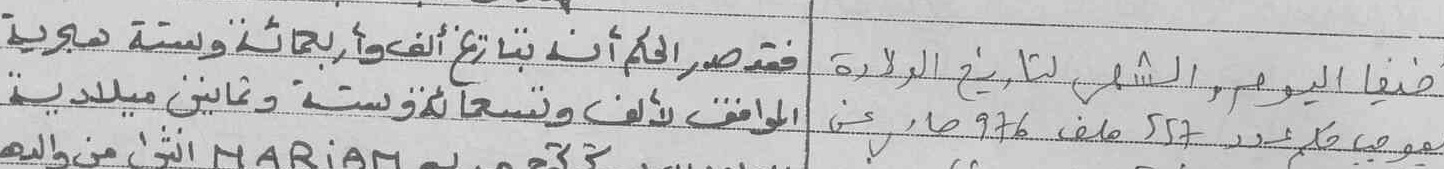 أضيفا اليوم والشهر لتاريخ الولادة
بموجب حكم عدد 557 ملف 976 صادر عن
فقد صدر الحكم أنه بتاريخ ألف وأربعمائة وستة هجرية
الموافق لألف وتسعمائة وستة وثمانين ميلادية
MARIAM أنثى من والدها